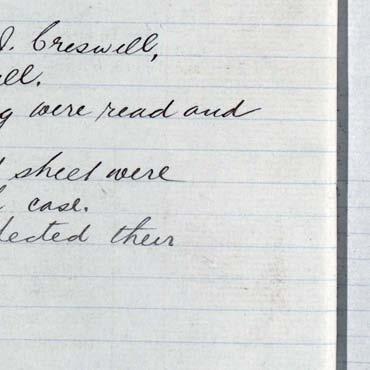 D. Creswell,
ell.
g were read and
sheet were
case.
lected their